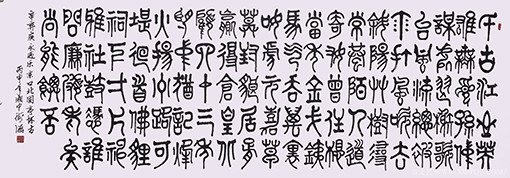 千古江山英
雄無覓孫仲
謀處舞榭歌
臺風流總被
雨打風吹去
斜陽草樹尋
常巷陌人道
寄奴曾住想
當年金戈鐵
馬氣吞萬里
如虎元嘉草
草封狼居胥
贏得倉皇北
顧四十三年
望中猶記烽
火揚州路可
堪回首佛狸
祠下一片神
鴉社鼓憑誰
問廉頗老矣
尚能飯否
辛棄疾永遇樂京口北固亭懷古
丙申年